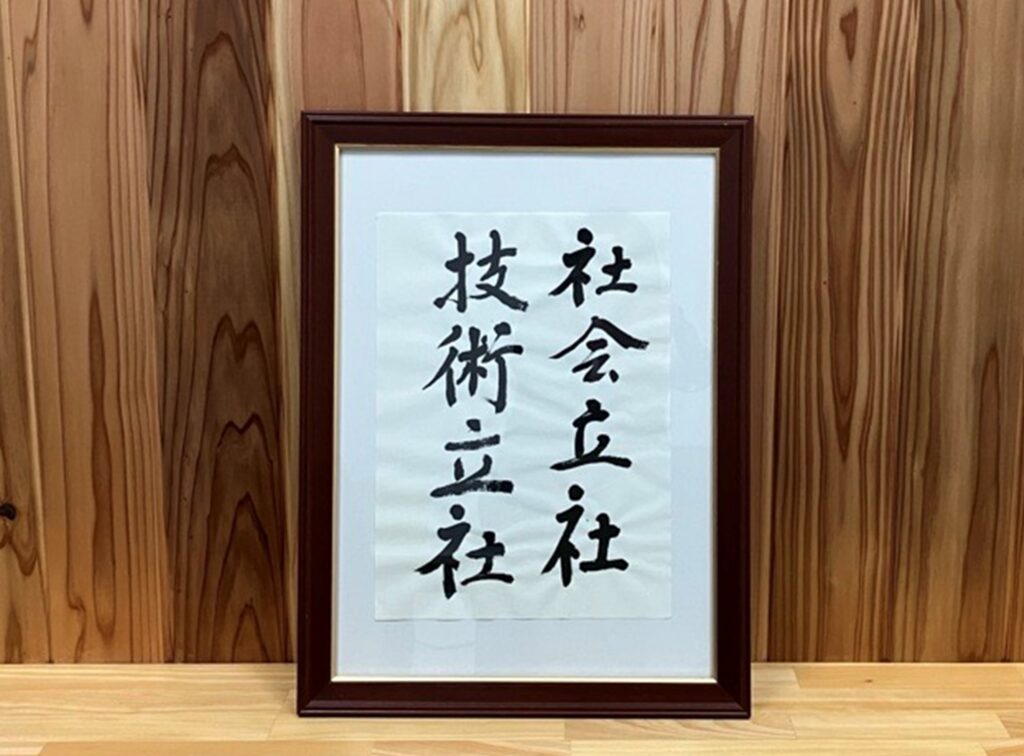 社会立社
技術立社